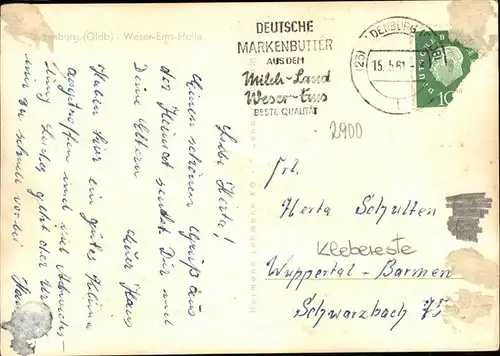 Oldenburg (Oldb) - Weser-Ems-Halle
DEUTSCHE
MARKENBUTTER
AUS DEM
Milch-Land
Weser-Ems
BESTE QUALITÄT
(23) OLDENBURG
15.5.61
10
2900
Liebe Herta!
Einen schönen Gruß aus
der Heimat sendet Dir und
Deine Eltern
euer Hans
Haben hier ein gutes Klima
angetroffen und viel Abwechs-
lung. Leider geht der Ur-
zu schnell vorbei
Hans
Frl.
Herta Schulten
Klebereste
Wuppertal-Barmen
Schwarzbach 75